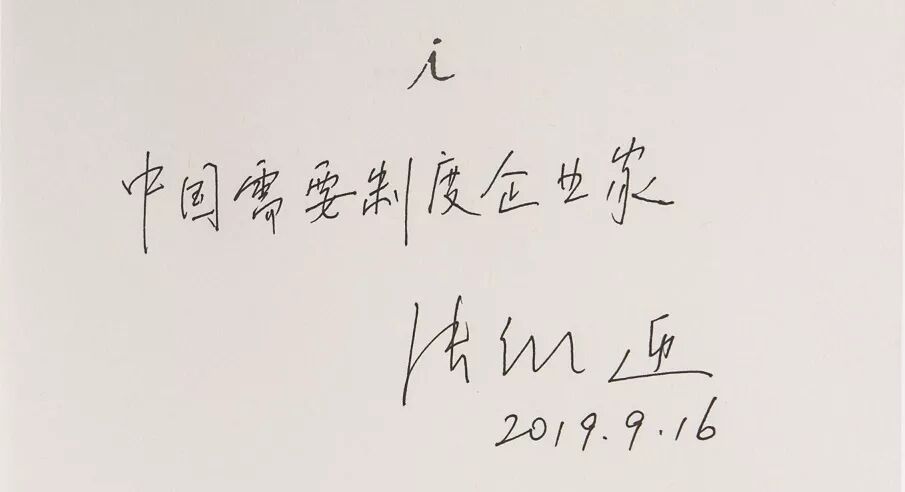 i
中国需要制度企业家
张维迎
2019.9.16